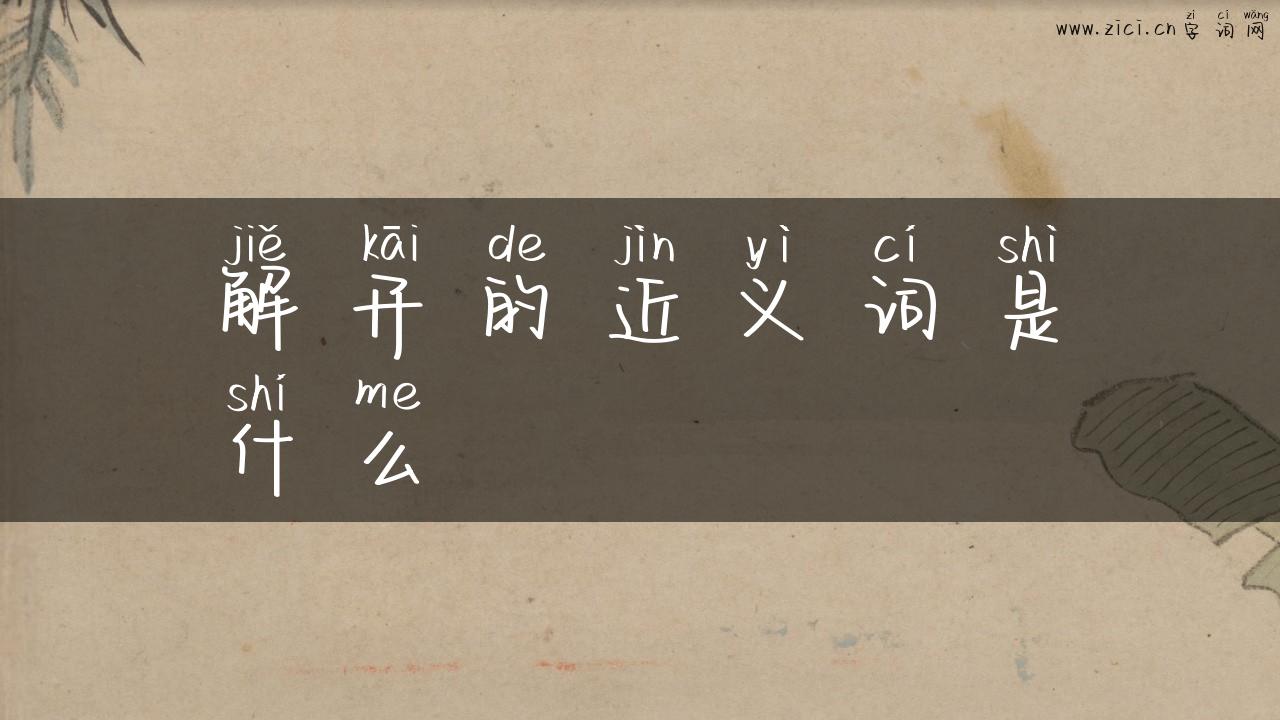 zì cí wǎng
www.zici.cn 字词网
jiě kāi de jìn yì cí shì
解开的近义词是
shí me
什么